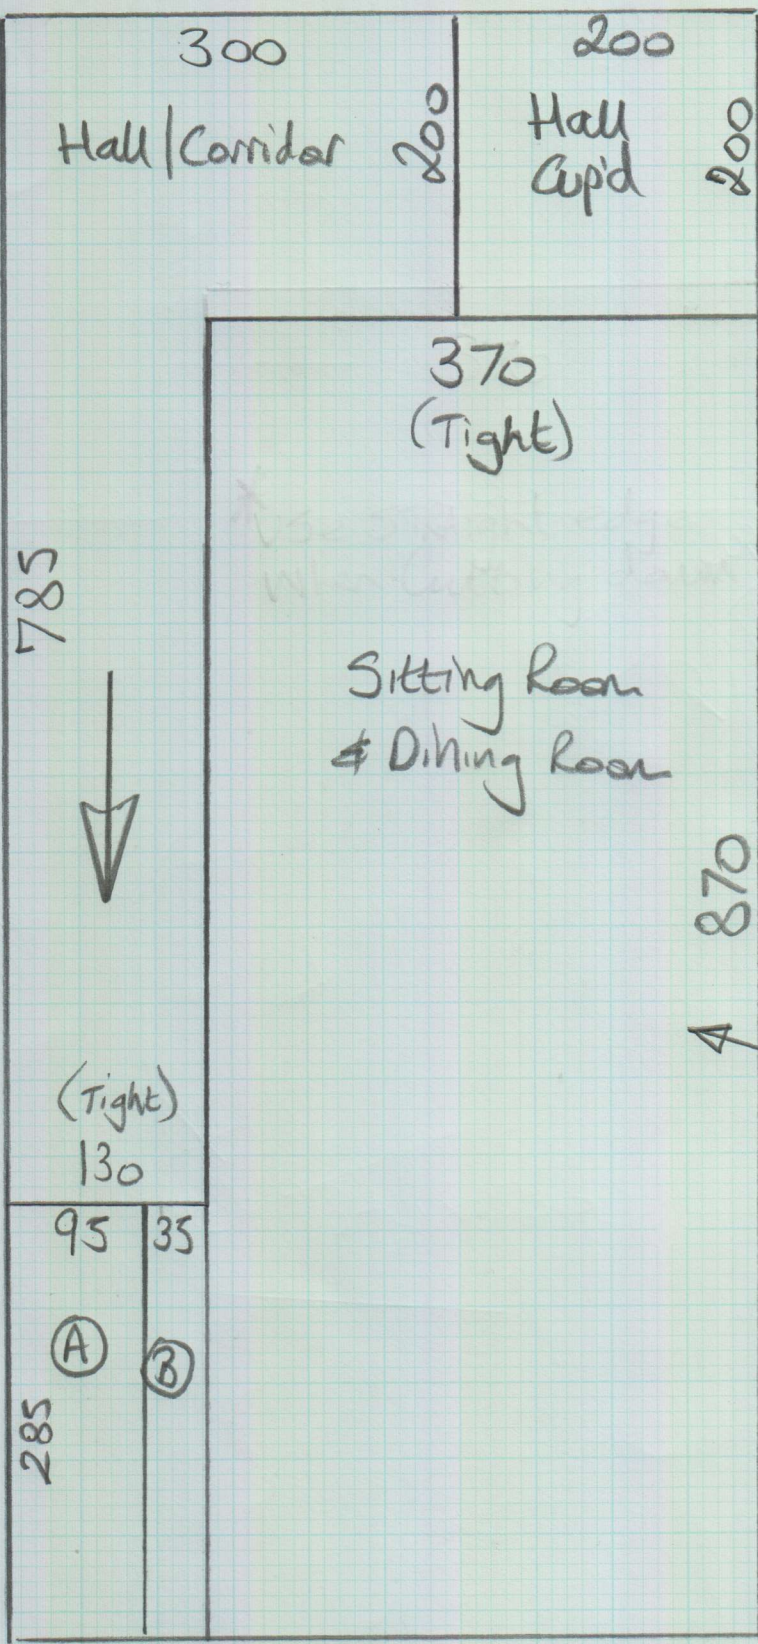 300
200
Hall/Corridor
200
Hall
Cup'd
200
370
(Tight)
785
Sitting Room
& Dining Room
870
(Tight)
130
95
35
A
B
285